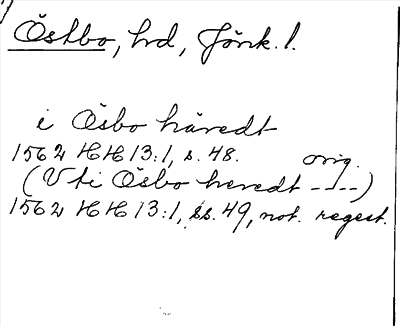 Östbo, hd, Jönk. l.
i Ösbo häredt
1562 HH 13:1, s. 48. orig.
(Vti Ösbo heredt ----)
1562 HH 13:1, ss. 49, not. regest.